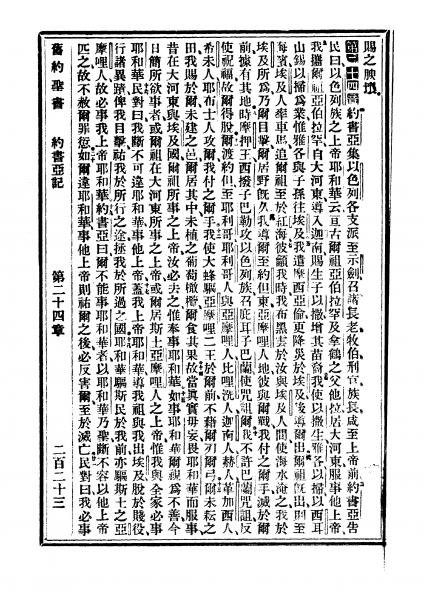 賜之腴壤
第二十四章約書亞集以色列各支派至示劍召諸長老牧伯刑官族長咸至上帝前約書亞告
民曰以色列族之上帝耶和華云亘古爾祖亞伯拉罕及拿鶴之父他拉居大河東服事他上帝
我攜爾祖亞伯拉罕自大河東導入迦南賜生子以撒增其苗裔我使以撒生雅各以掃以西耳
山錫以掃爲業惟雅各與子孫往埃及我遣摩西亞倫更降災於埃及後導爾出爾祖旣出則至
海濱埃及人率車馬追爾祖至於紅海彼籲我時我布黑雲於汝與埃及人間使海水淹之我於
埃及所爲乃爾目擊爾居野旣久我導爾至約但東亞摩哩人地彼與爾戰我付之爾手滅於爾
前據有其地時摩押王西撥子巴勒攻以色列族召庇耳子巴蘭使咒詛爾我不許巴蘭咒詛反
使祝福故爾得脫爾渡約但至耶利哥耶利哥人與亞摩哩人比哩洗人迦南人赫人革加西人
希未人耶布士人攻爾我付之爾手我使大蜂驅亞摩哩二王於爾前不藉爾刃爾弓爾未耘之
田我賜於爾未建之邑爾居其中未植之葡萄橄欖爾食其果故當真實毋妄畏耶和華而服事
昔在大河東與埃及國爾祖所事之上帝汝必去之惟奉事耶和華如事耶和華爾視爲不善今
日簡所欲事者或爾祖在大河東所事之上帝或爾居斯土亞摩哩人之上帝惟我與全家必事
耶和華民對曰我斷不可違耶和華事他上帝蓋我上帝耶和華導我祖與我出埃及脫於賤役
行諸異蹟俾我目擊祐我於所行之途拯我於所過之國耶和華驅斯民於我前亦驅斯土之亞
摩哩人故必事我上帝耶和華約書亞曰爾不能事耶和華者以耶和華乃聖斷不容以他上帝
匹之故不赦爾罪愆如爾違耶和華事他上帝則祐爾之後必反害爾至於滅亡民對曰我必事
舊約聖書 約書亞記 第二十四章 二百二十三